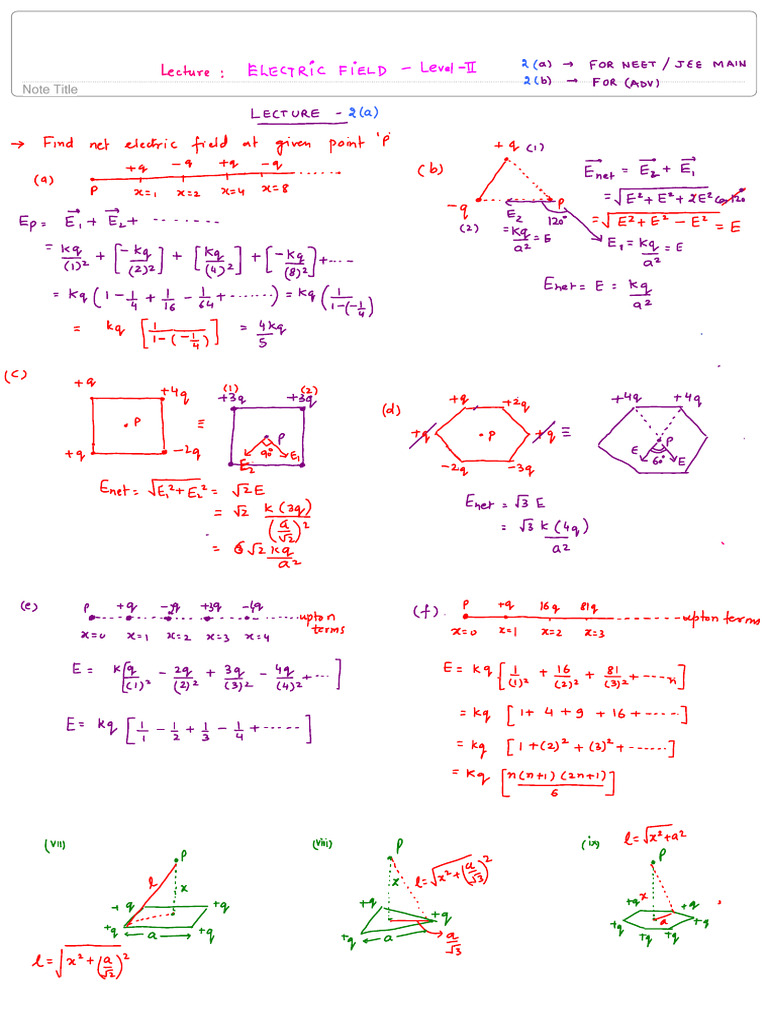 Lecture : ELECTRIC FIELD - Level-II
2(a) → FOR NEET / JEE MAIN
2(b) → FOR (ADV)
Note Title
LECTURE - 2(a)
→ Find net electric field at given point 'P'
(a)
+q -q +q -q
P x=1 x=2 x=4 x=8
Ep = E₁ + E₂ + ........
= kq/(1)² + [-kq/(2)²] + [kq/(4)²] + [-kq/(8)²] + ....
= kq (1 - 1/4 + 1/16 - 1/64 + ......) = kq (1/1-(-1/4)
= kq [1/1-(-1/4)] = 4kq/5
(b)
+q (1)
-q
(2)
P
E₂ = kq/a² = E
120°
E₁ = kq/a² = E
Enet = E₂ + E₁
= √E² + E² + 2E² cos 120
= √E² + E² - E² = E
Enet = E = kq/a²
(c)
+q +4q
P
+q -2q
≡
(1) (2)
+3q +3q
P
90°
E₂ E₁
Enet = √E₁² + E₂² = √2 E
= √2 k(3q)/(a/√2)²
= 6√2 kq/a²
(d)
+q +2q
+q P +q
-2q -3q
≡
+4q +4q
P
E 60° E
Enet = √3 E
= √3 k(4q)/a²
(e)
P +q -2q +3q -4q
upto n terms
x=0 x=1 x=2 x=3 x=4
E = k[q/(1)² - 2q/(2)² + 3q/(3)² - 4q/(4)² + ...]
E = kq [1/1 - 1/2 + 1/3 - 1/4 + .....]
(f).
P +q 16q 81q
upto n terms
x=0 x=1 x=2 x=3
E = kq [1/(1)² + 16/(2)² + 81/(3)² + ..... n]
= kq [1 + 4 + 9 + 16 + .....]
= kq [1 + (2)² + (3)² + ......]
= kq [n(n+1)(2n+1)/6]
(vii)
P
l
x
+q +q
+q a +q
l = √x² + (a/√2)²
(viii)
P
x
l = √x² + (a/√3)²
+q +q
+q a
a/√3
(ix)
l = √x² + a²
P
x
+q +q
a
+q +q
+q +q